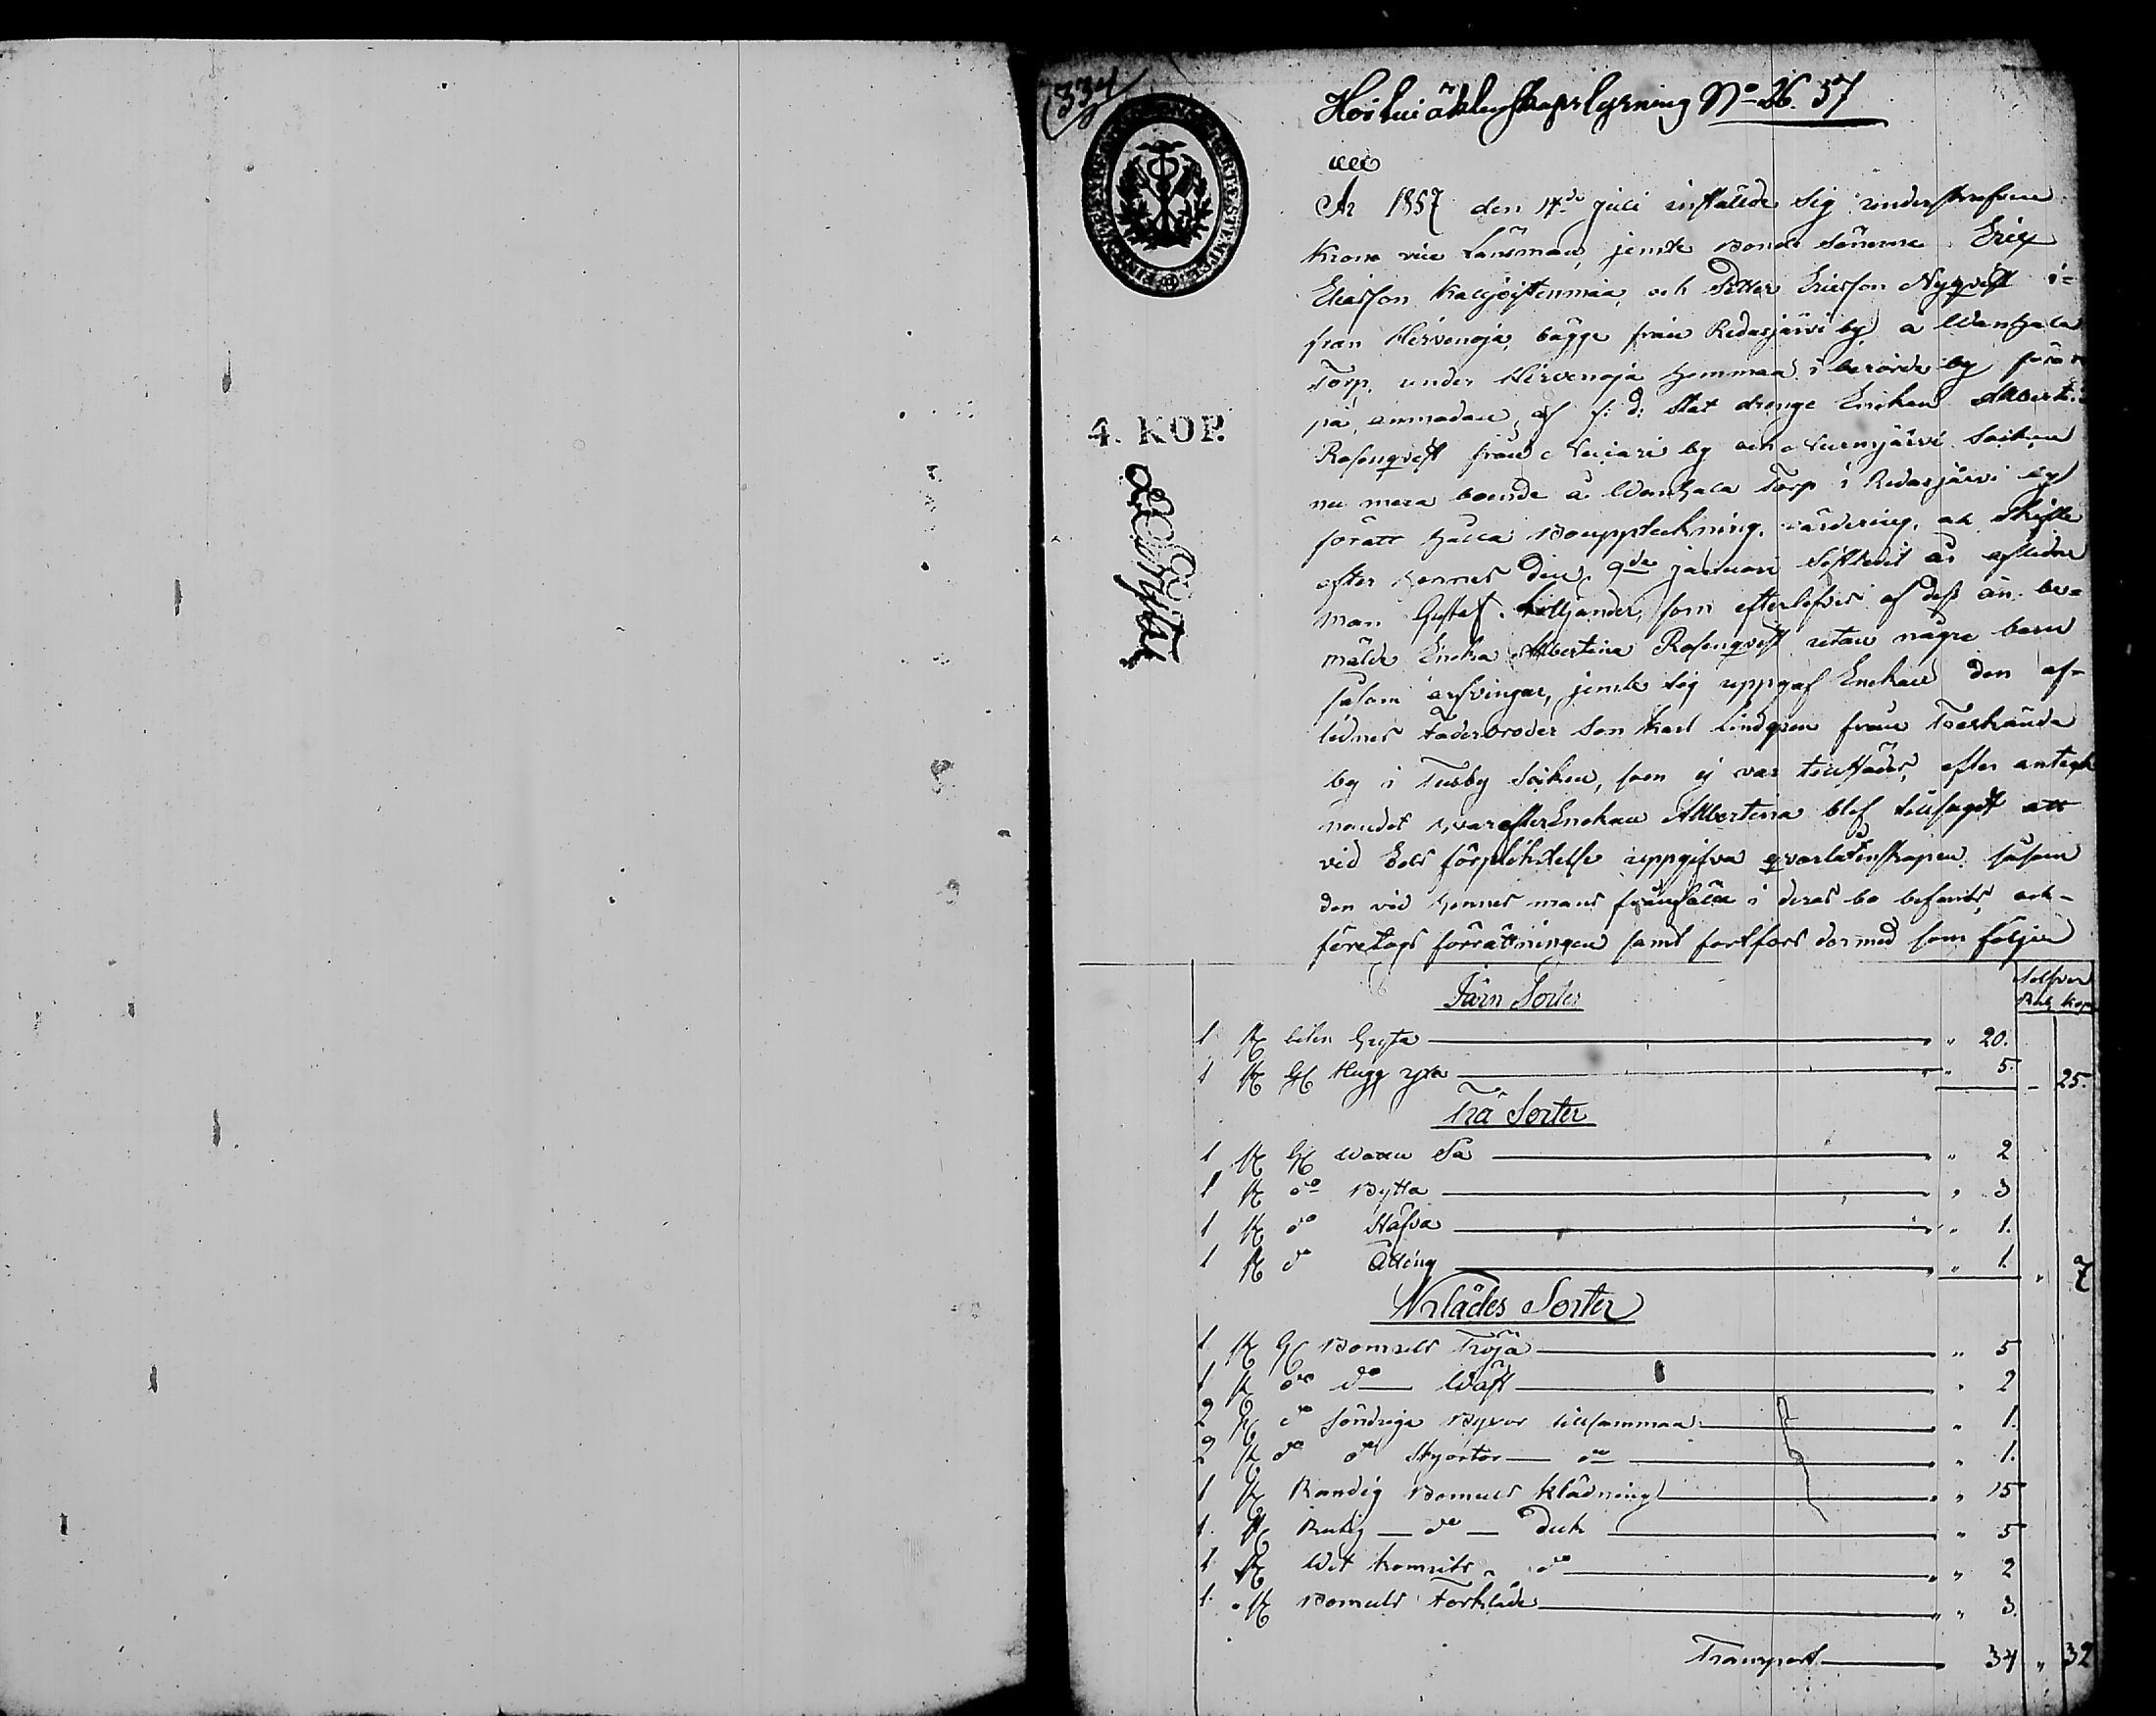 334
Hösten äktenskapslysning No 26. 57
4. KOP.
År 1857 den 14de Juli instälde sig underskrefven
Krono vice Länsman, jemte Bonde Sönerne Erik
Ericsson och Petter Ericsson Nyqvist i-
från Hirvenoja, bägge från Ridasjärvi by, å Wanhala
Torp, under Hirvenoja Hemman i berörde by förr
på anmodan, af f: d: Stat drengs Enckan Albertina
Rosenqvist från by och Nurmjärvi Socken
nu mera boende å Wanhala Torp i Ridasjärvi by
för att hålla Bouppteckning, värdering, och Skifte
efter hennes den 9de Januari sistledit år aflidne
man Gustaf Lilljander, som efterlefves af dess än be-
mälde Encka Albertina Rosenqvist utan några barn
såsom arfvingar, jemte sig uppgaf Enckan den af-
lidnes Faderbroder Son Karl Lindgren från Träskända
by i Tusby Socken, som ej var tillstädes, efter antek
nandet hvarefter Enckan Albertina blef tillsagdt att
vid Eds förpliktelse uppgifva qvarlåtenskapen såsom
den vid hennes mans frånfälle i deras bo befants, och-
företogs förrättningen samt fortfors dermed som följer
Silfver
Rub. Kop.
Järn Sorter
1 st liten Gryta " 20.
1 st gl Hugg yxa " 5. - 25.
Trä Sorter
1 st gl Watten Så " 2
1 st do Bytta " 3
1 st do Stäfva " 1.
1 st do Åtting " 1. " 7
Klädes Sorter
1 st gl Bomulls Tröja " 5
1 st do do Wäst " 2
2 st do söndriga Byxor tillsamman " 1.
2 st do do Skjortor do " 1.
1 st Randig Bomulls klädning " 15
1 st Rutig do Duk " 5
1 st Wit do " 2
1 st Bomulls Förkläde " 3.
Transport 34 " 32